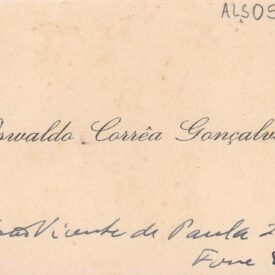 ALS05
swaldo Corrêa Gonçalv
Vicente de Paula 2
Fone